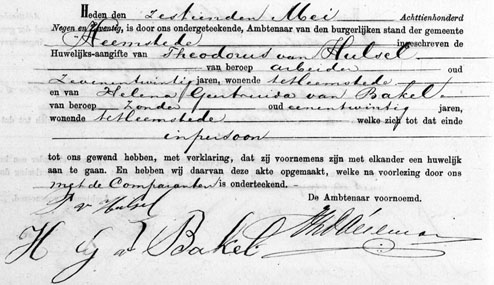 Heden den zestienden Mei Achttienhonderd
Negen en Negentig, is door ons ondergeteekende, Ambtenaar van den burgerlijken stand der gemeente
Heemstede ingeschreven de
Huwelijks-aangifte van Theodorus van Hulsel
van beroep arbeider oud
zevenentwintig jaren, wonende te Heemstede
en van Helena Geertruida van Bakel
van beroep zonder oud eenentwintig jaren,
wonende te Heemstede welke zich tot dat einde
in persoon
tot ons gewend hebben, met verklaring, dat zij voornemens zijn met elkander een huwelijk
aan te gaan. En hebben wij daarvan deze akte opgemaakt, welke na voorlezing door ons
met de Comparanten is onderteekend.
De Ambtenaar voornoemd.
T v Hulsel
H G v Bakel